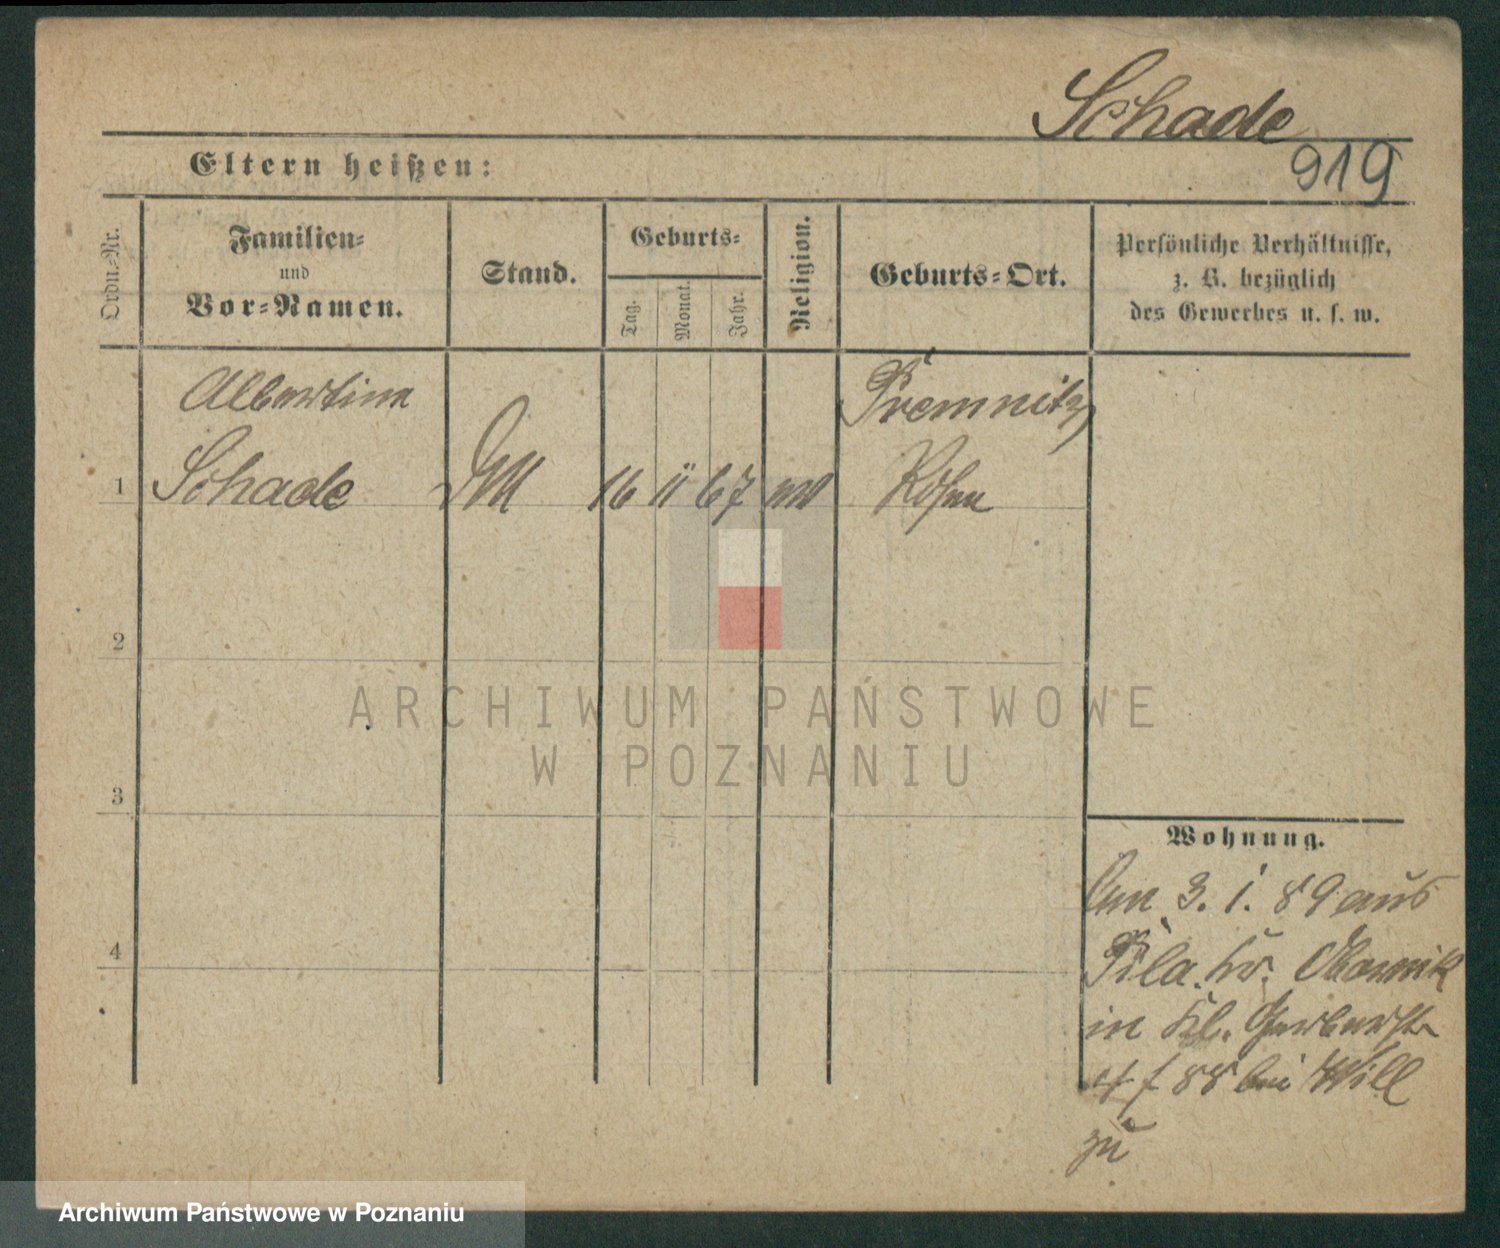 Schade
919
Eltern heißen:
Ordn.-Nr.
Familien-
und
Vor-Namen.
Stand.
Geburts-
Tag.
Monat.
Jahr.
Religion.
Geburts-Ort.
Persönliche Verhältnisse,
z. B. bezüglich
des Gewerbes u. s. w.
Albertine
Schade
1
16 11 67
Premnitz
Posen
2
3
4
ARCHIWUM PAŃSTWOWE
W POZNANIU
Wohnung.
3. 1. 89 aus
Pila. Kr. Obornik
in Kl. Gerberstr
88 bei Will
zu
Archiwum Państwowe w Poznaniu